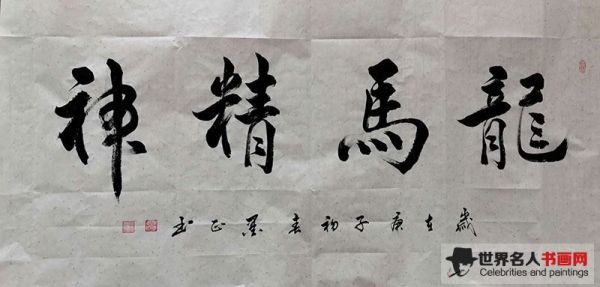 龍馬精神
歲在庚子初春墨正书
世界名人书画网
Celebrities and paintings